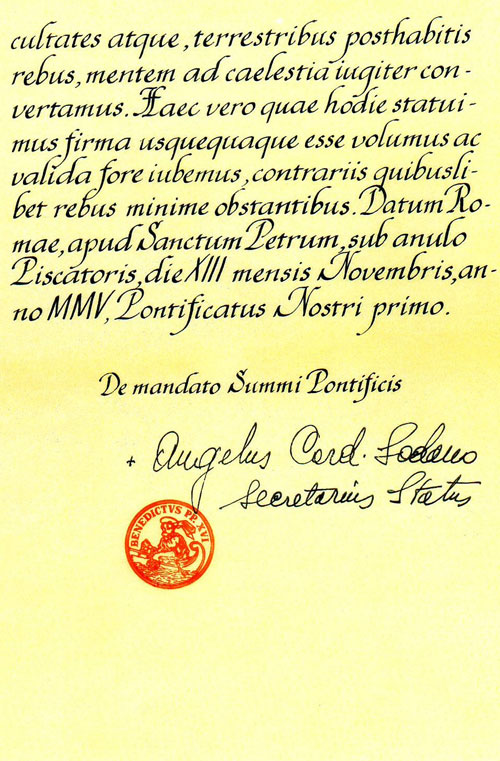 cultates atque, terrestribus posthabitis
rebus, mentem ad caelestia iugiter con-
vertamus. Haec vero quae hodie statui-
mus firma usquequaque esse volumus ac
valida fore iubemus, contrariis quibusli-
bet rebus minime obstantibus. Datum Ro-
mae, apud Sanctum Petrum, sub anulo
Piscatoris, die XIII mensis Novembris, an-
no MMV, Pontificatus Nostri primo.
De mandato Summi Pontificis
+ Angelus Card. Sodano
Secretarius Status
BENEDICTVS PP. XVI